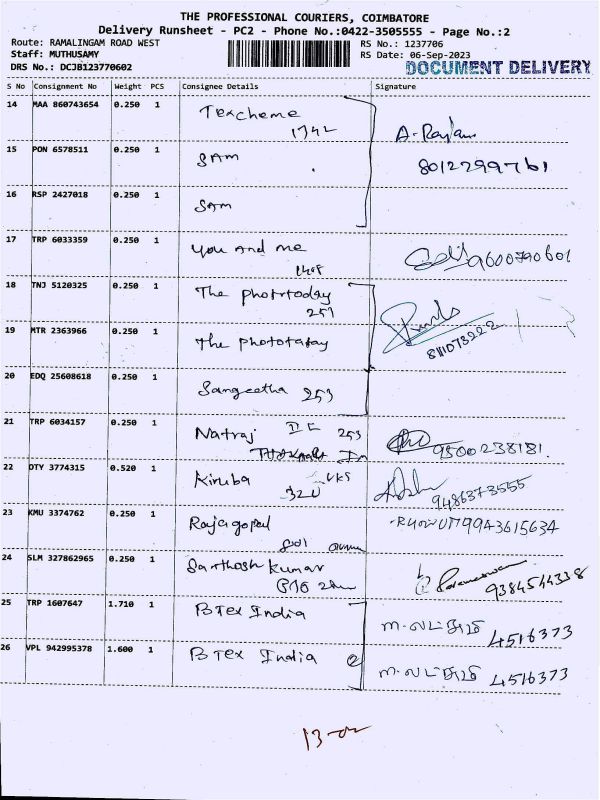 THE PROFESSIONAL COURIERS, COIMBATORE
Delivery Runsheet - PC2 - Phone No.:0422-3505555 - Page No.:2
Route: RAMALINGAM ROAD WEST RS No.: 1237706
Staff: MUTHUSAMY RS Date: 06-Sep-2023
DRS No.: DCJB123770602 DOCUMENT DELIVERY
S No Consignment No Weight PCS Consignee Details Signature
14 MAA 860743654 0.250 1 Texcheme
1342 A-Rajan
15 PON 6578511 0.250 1 SAM 8012299761
16 RSP 2427018 0.250 1 SAM
17 TRP 6033359 0.250 1 you and me 9600790601
1408
18 TNJ 5120325 0.250 1 The phototoday
251
19 MTR 2363966 0.250 1 The phototoday 8111073222
20 EDQ 25608618 0.250 1 Sangeetha 253
21 TRP 6034157 0.250 1 Natraj 253
9500238181.
22 OTY 3774315 0.520 1 Kiruba VKS
320 9486373555
23 KMU 3374762 0.250 1 Rajagopal 9943615634
24 SLM 327862965 0.250 1 Santhosh kumar
9384544338
25 TRP 1607647 1.710 1 BTex India 4516373
26 VPL 942995378 1.600 1 BTex India 4516373